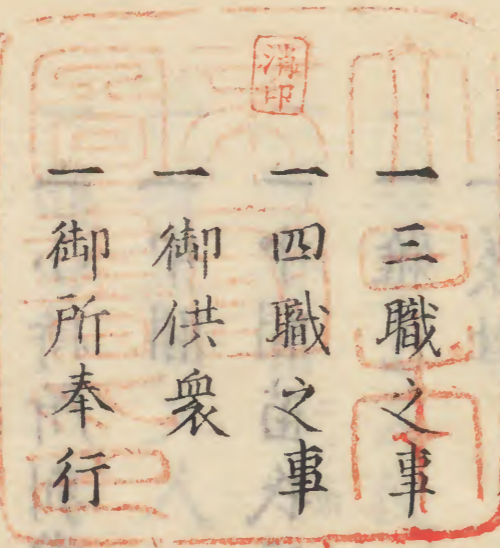 一三職之事
一四職之事
一御供衆
一御所奉行
消印